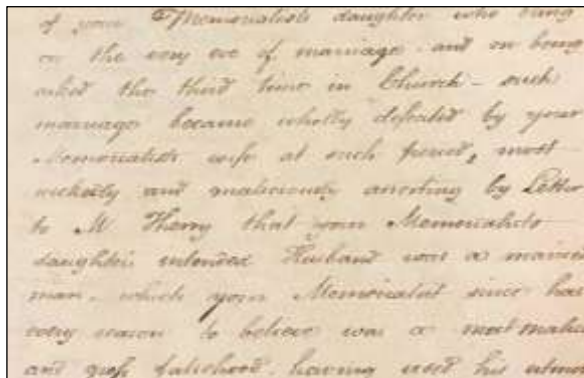 of your Memorialists daughter who being
on the very eve of marriage and on being
asked the third time in Church – such
marriage became wholly defeated by your
Memorialists wife at such period, most
wickedly and maliciously asserting by Letter
to Mr Harry that your Memorialists
daughters intended Husband was a married
man, which your Memorialist since has
every reason to believe was a most malic
and gross falsehood, having used his utmos